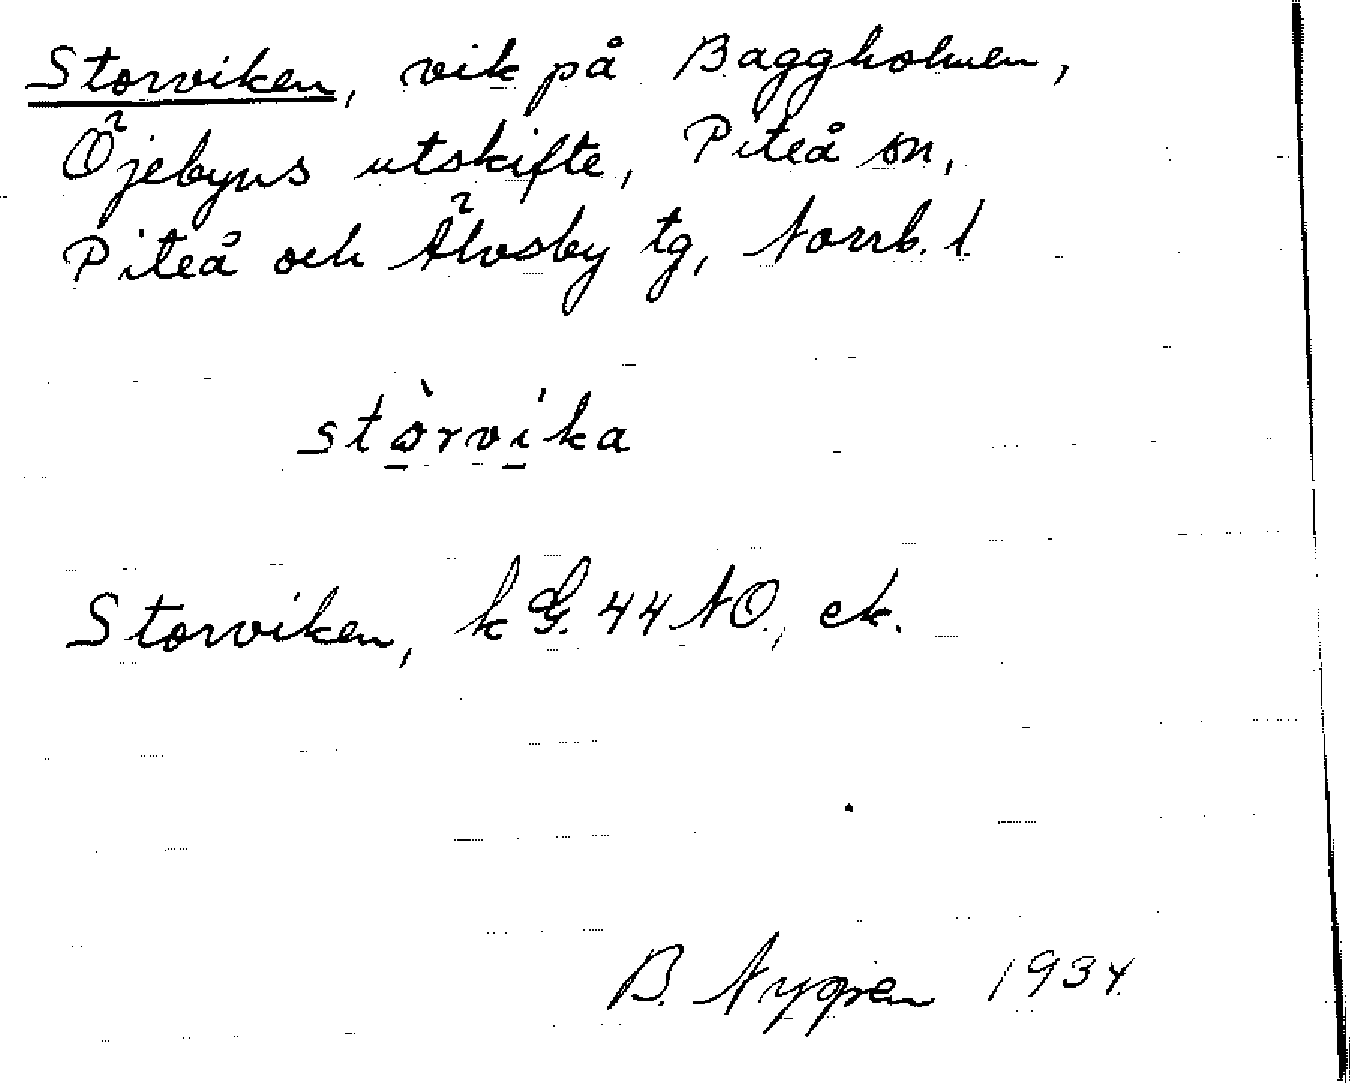 Storviken, vik på Baggholmen,
Öjebyns utskifte, Piteå sn,
Piteå och Älvsby tg, Norrb. l.
stò̱rvi̱´ka
Storviken, k G. 44 NO., ek.
B. Nygren 1934